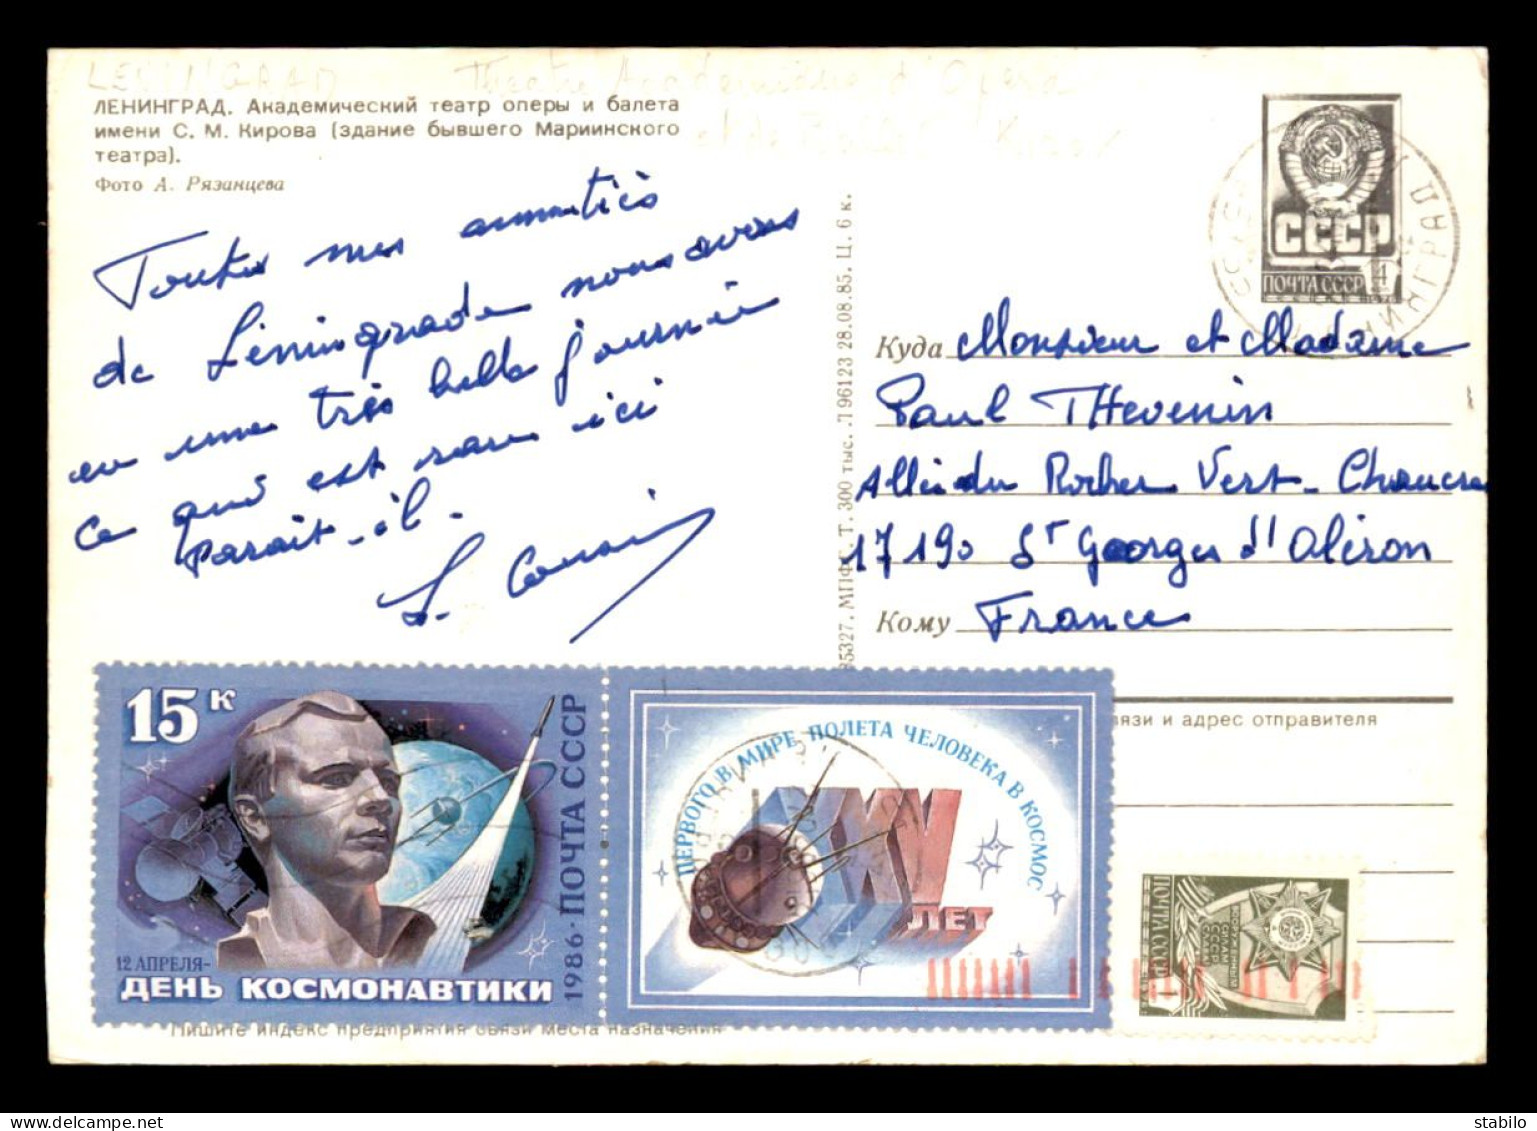 LENINGRAD Theatre Academique d'Opera
et de Ballet Kirov
ЛЕНИНГРАД. Академический театр оперы и балета
имени С. М. Кирова (здание бывшего Мариинского
театра).
Фото А. Рязанцева
Toutes mes amitiés
de Léningrade nous avons
eu une très belle journée
ce qui est rare ici
parait-il.
ПОЧТА СССР
СССР
4
Куда Monsieur et Madame
Paul THevenin
Allée du Rocher Vert - Chaucre
17190 St Georges d'Oléron
Кому France
85327. МПФГ. Т. 300 тыс. Л 96123 28.08.85. Ц. 6 к.
язи и адрес отправителя
15 к
12 АПРЕЛЯ-
ДЕНЬ КОСМОНАВТИКИ
1986 · ПОЧТА СССР
ПЕРВОГО В МИРЕ ПОЛЕТА ЧЕЛОВЕКА В КОСМОС
XXV
ЛЕТ
ПОЧТА СССР
Пишите индекс предприятия связи места назначения
stabilo